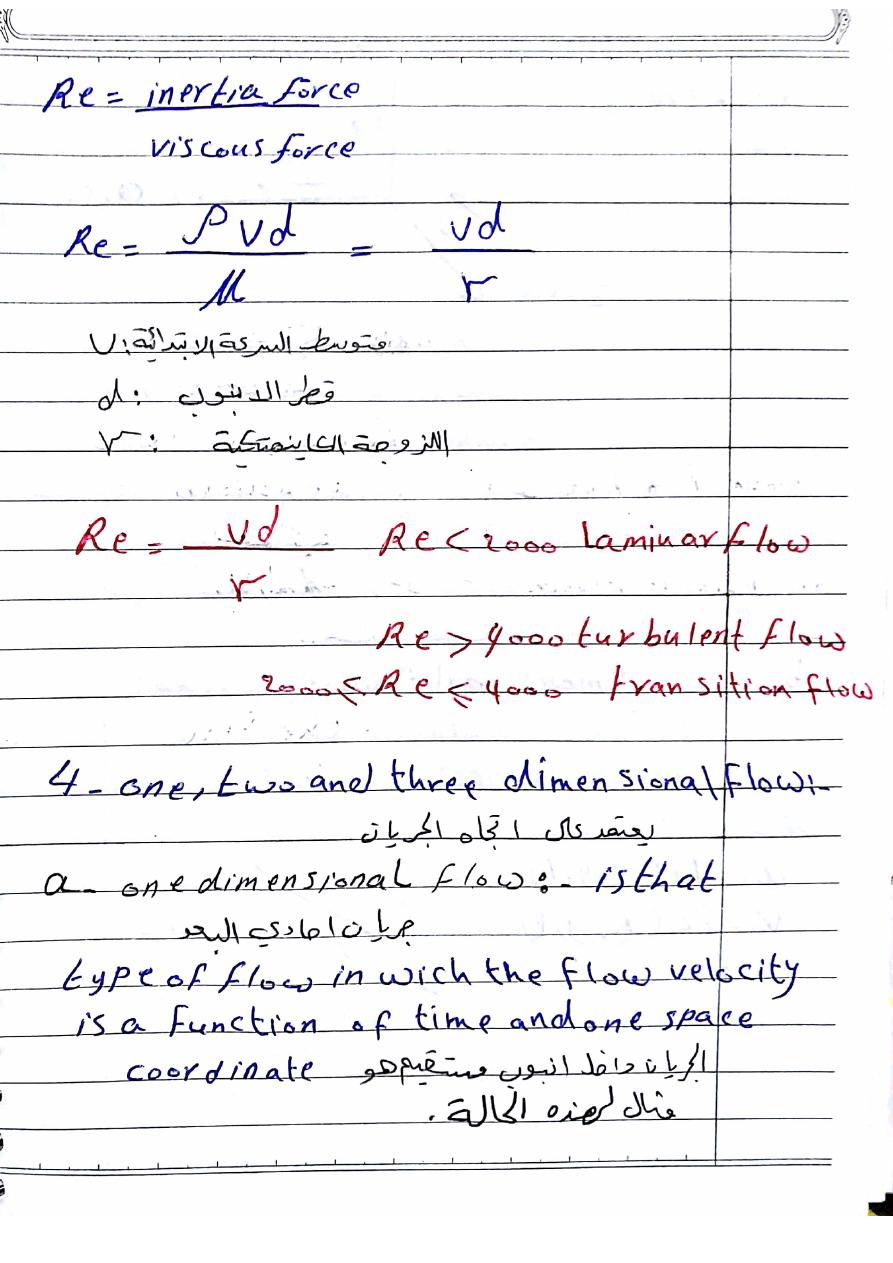 Re = inertia force
viscous force
Re = ρVd / μ = Vd / r
V: متوسط السرعة الابتدائية
d: قطر الانبوب
r: اللزوجة الكاينمتيكية
Re = Vd / r Re < 2000 Laminar flow
Re > 4000 turbulent flow
2000 ≤ Re ≤ 4000 transition flow
4- one, two and three dimensional flow:-
يعتمد على اتجاه الجريان
a- one dimensional flow:- is that
جريان احادي البعد
type of flow in wich the flow velocity
is a function of time and one space
coordinate الجريان داخل انبوب مستقيم هو
مثال لهذه الحالة.